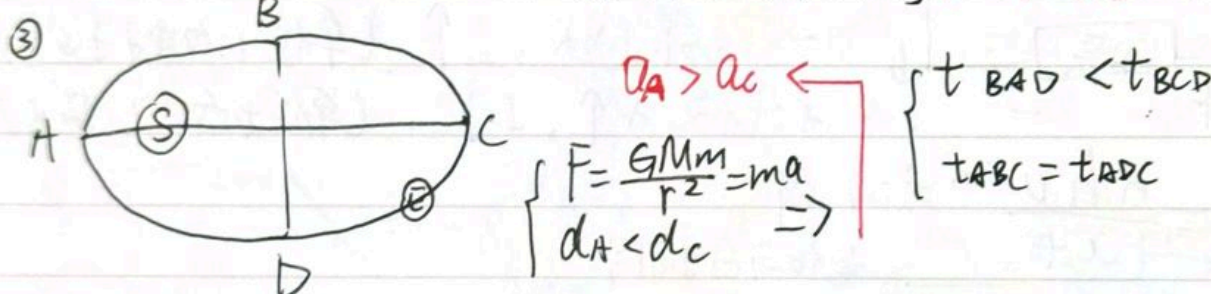 ③
B
A
S
C
E
D
a_A > a_C
F = \frac{GMm}{r^2} = ma
d_A < d_C
⇒
t_{BAD} < t_{BCD}
t_{ABC} = t_{ADC}